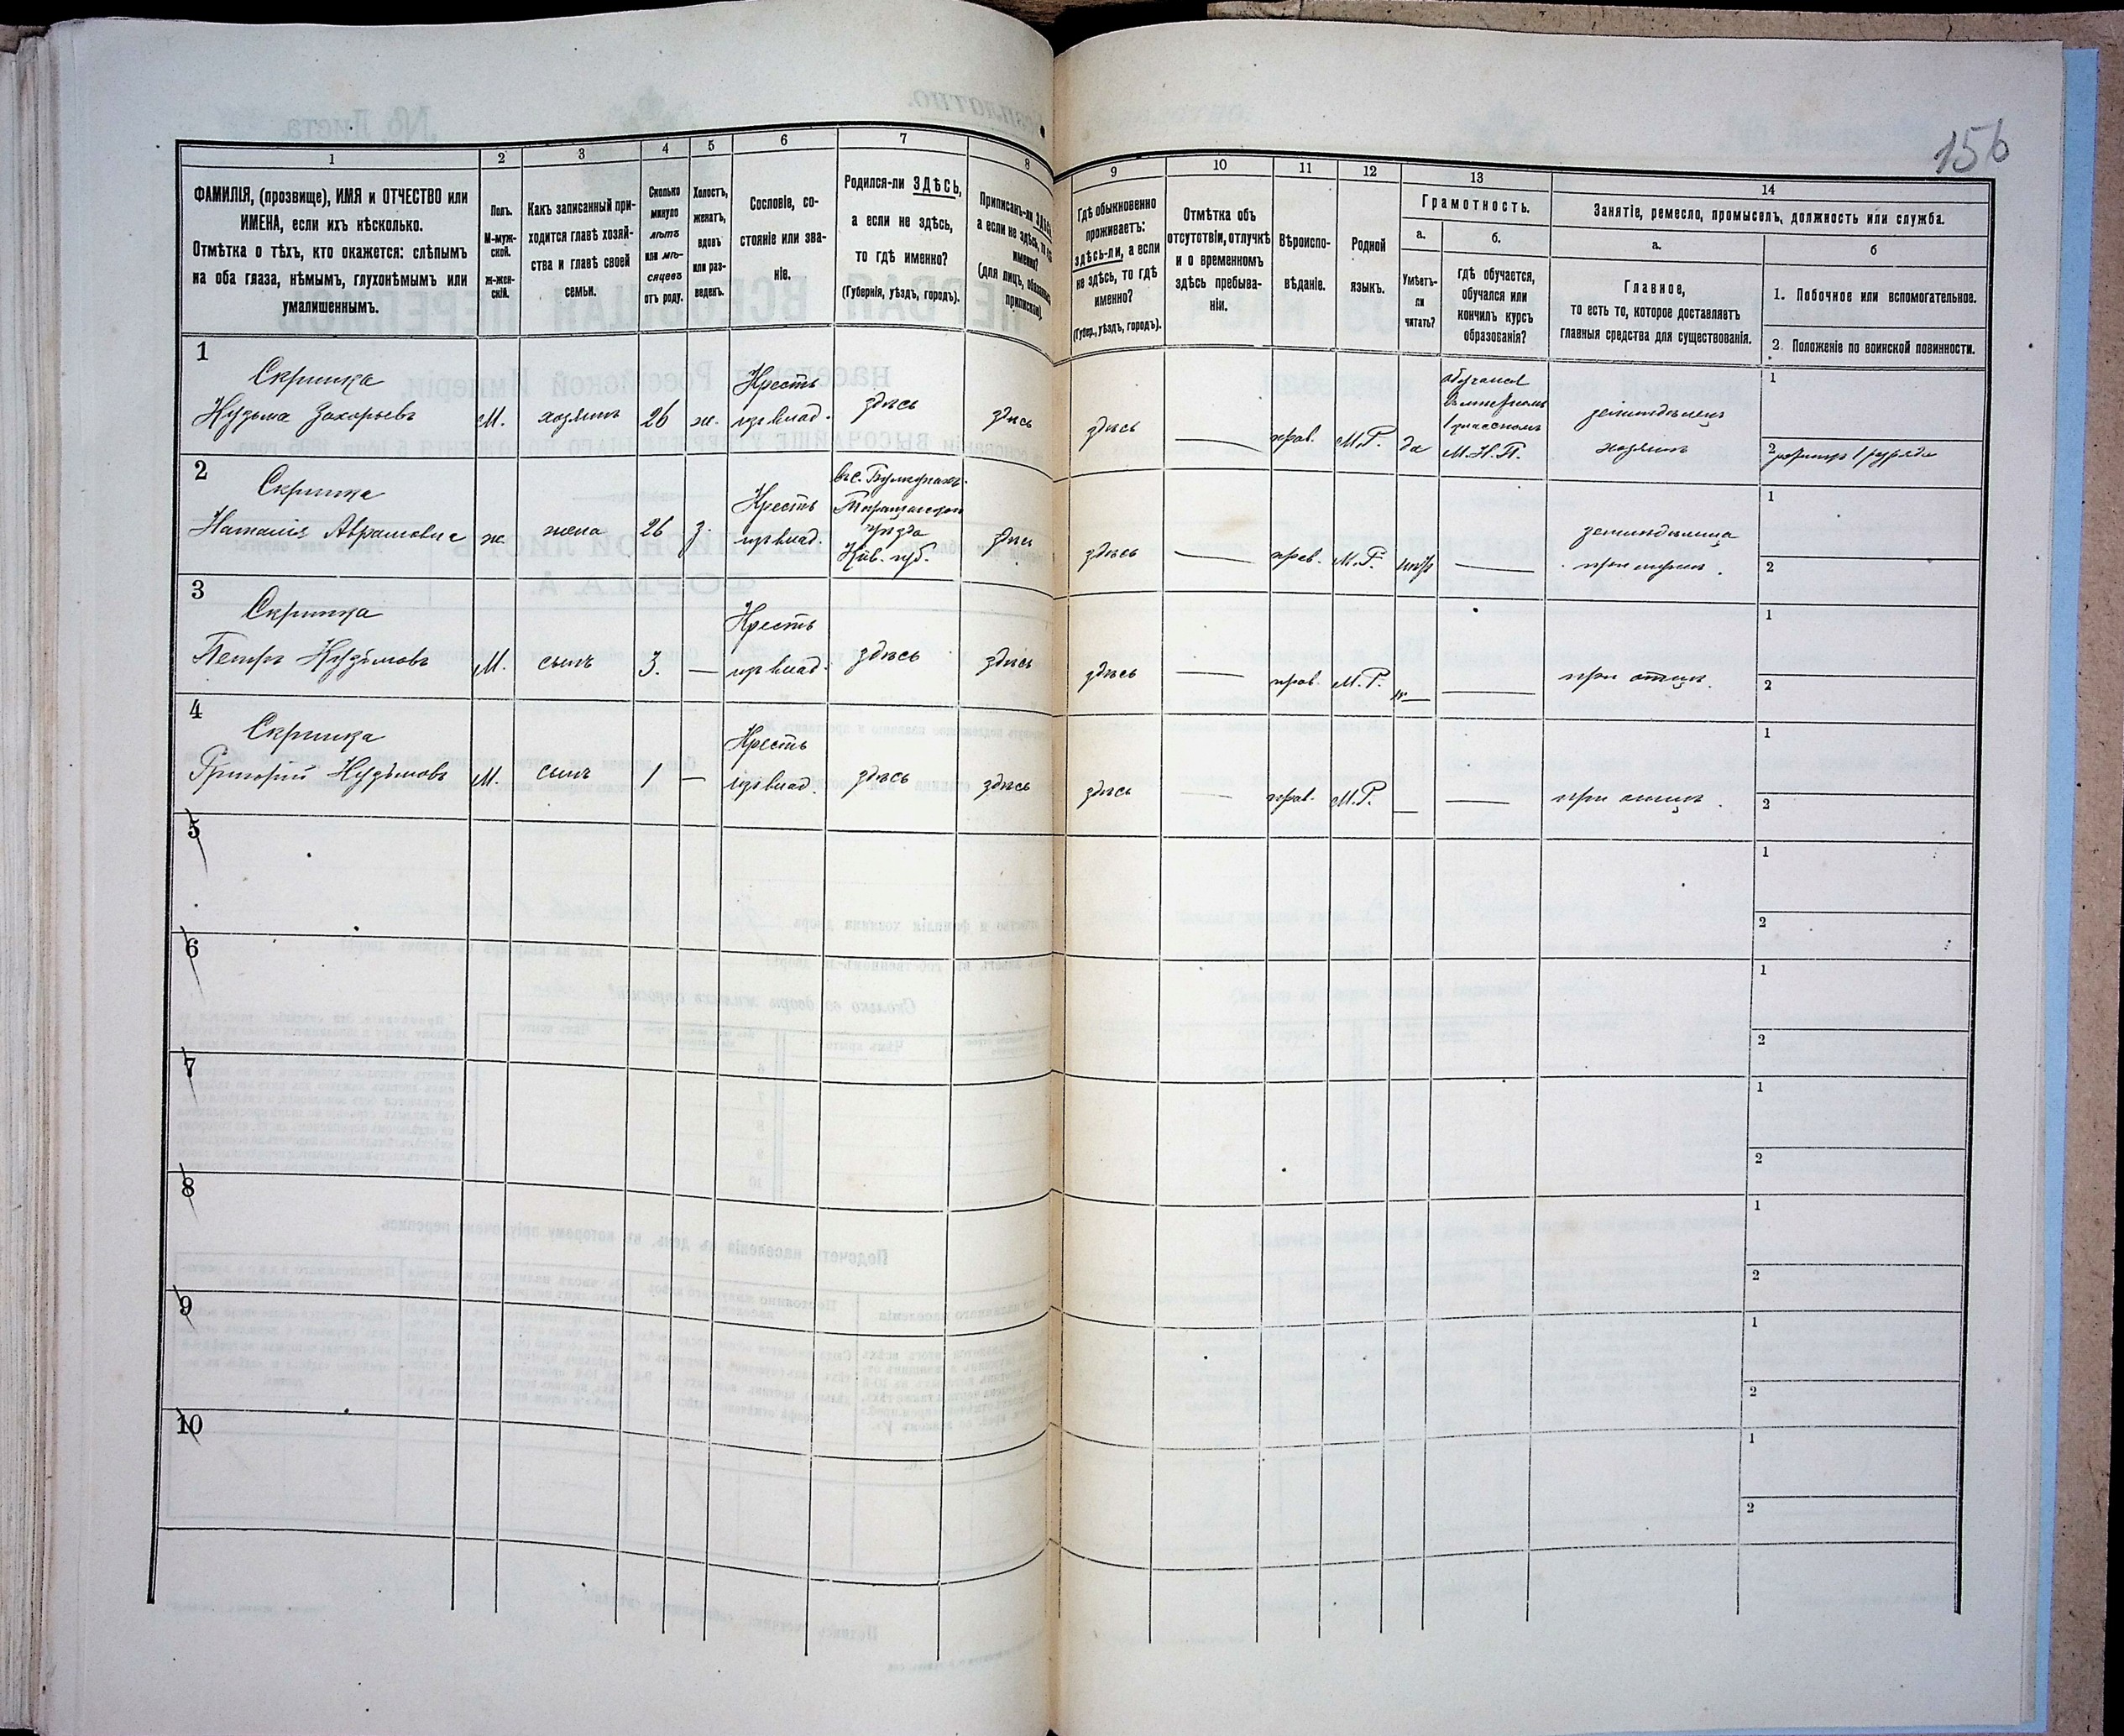 156
1
2
3
4
5
6
7
8
9
10
11
12
13
14
ФАМИЛІЯ, (прозвище), ИМЯ и ОТЧЕСТВО или
ИМЕНА, если ихъ нѣсколько.
Отмѣтка о тѣхъ, кто окажется: слѣпымъ
на оба глаза, нѣмымъ, глухонѣмымъ или
умалишеннымъ.
Полъ.
М-муж-
ской.
ж-жен-
скій.
Какъ записанный при-
ходится главѣ хозяй-
ства и главѣ своей
семьи.
Сколько
минуло
лѣтъ
или мѣ-
сяцевъ
отъ роду.
Холостъ,
женатъ,
вдовъ
или раз-
веденъ.
Сословіе, со-
стояніе или зва-
ніе.
Родился-ли ЗДѢСЬ,
а если не здѣсь,
то гдѣ именно?
(Губернія, уѣздъ, городъ).
Приписанъ-ли ЗДѢСЬ,
а если не здѣсь, то гдѣ
именно?
(для лицъ, обязанныхъ
припискою).
Гдѣ обыкновенно
проживаетъ:
здѣсь-ли, а если
не здѣсь, то гдѣ
именно?
(Губер., уѣздъ, городъ).
Отмѣтка объ
отсутствіи, отлучкѣ
и о временномъ
здѣсь пребыва-
ніи.
Вѣроиспо-
вѣданіе.
Родной
языкъ.
Грамотность.
а.
Умѣетъ-
ли
читать?
б.
гдѣ обучается,
обучался или
кончилъ курсъ
образованія?
Занятіе, ремесло, промыселъ, должность или служба.
а.
Главное,
то есть то, которое доставляетъ
главныя средства для существованія.
б
1. Побочное или вспомогательное.
2. Положеніе по воинской повинности.
1
Скрипка
Кузьма Захарьевъ
М.
хозяинъ
26
ж.
Крестъ
изъ влад.
здѣсь
здѣсь
здѣсь
прав.
М.Р.
да
обучался
1 классномъ
М.Н.П.
земледѣлецъ
хозяинъ
1
2
2
Скрипка
Наталія Абрамовна
ж
жена
26
з.
Крестъ
изъ влад.
Таращанскаго
уѣзда
Кіев. губ.
здѣсь
здѣсь
прав.
М.Р.
нѣтъ
земледѣлица
при мужѣ.
1
2
3
Скрипка
Петръ Кузьмовъ
М.
сынъ
3.
—
Крестъ
изъ влад.
здѣсь
здѣсь
здѣсь
прав.
М.Р.
при отцѣ.
1
2
4
Скрипка
Григорій Кузьмовъ
М.
сынъ
1
—
Крестъ
изъ влад.
здѣсь
здѣсь
здѣсь
прав.
М.Р.
при отцѣ.
1
2
5
1
2
6
1
2
7
1
2
8
1
2
9
1
2
10
1
2